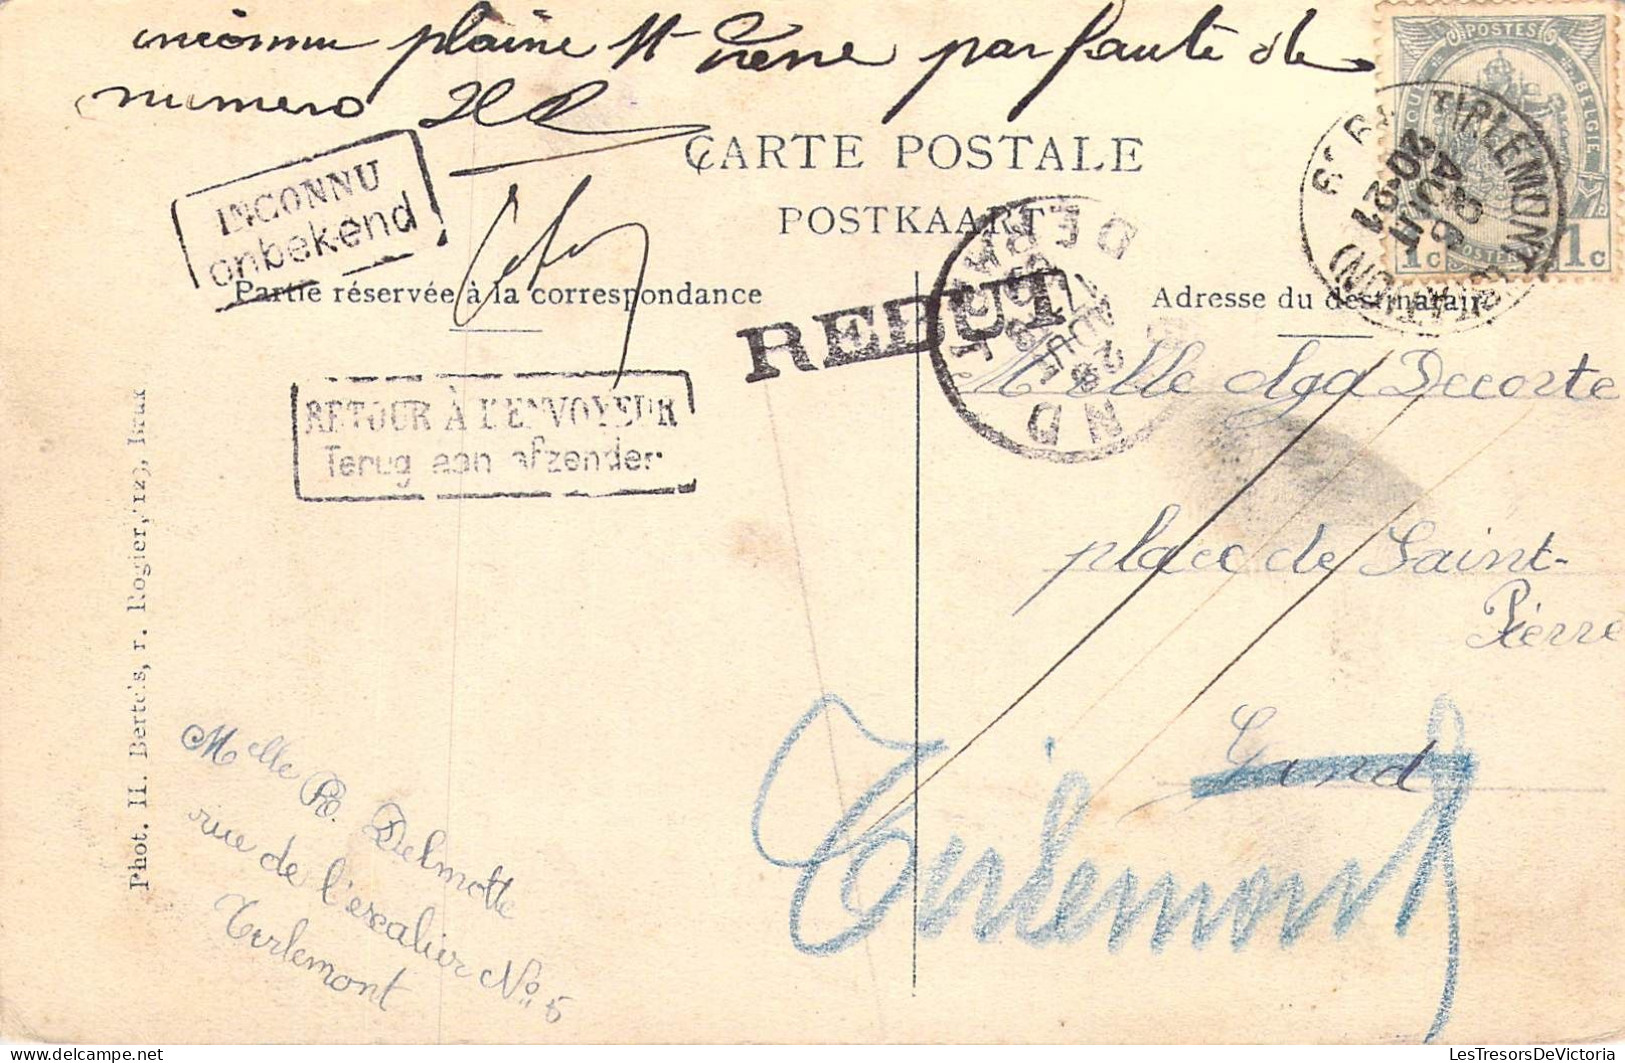 inconnu plaine St Pierre par faute de
numero
CARTE POSTALE
POSTKAART
INCONNU
onbekend
Partie réservée à la correspondance
Adresse du destinataire
REBUT
RETOUR À L'ENVOYEUR
Terug aan afzender
POSTES
BELGIE
1c 1c
TIRLEMONT
(STATION)
AOUT
20-21
Melle Olga Decorte
place de Saint-
Pierre
Gand
Tirlemont
Melle R. Delmotte
rue de l'escalier No 5
Tirlemont
Phot. H. Bertels, r. Rogier, 123, Brux
LesTresorsDeVictoria.com